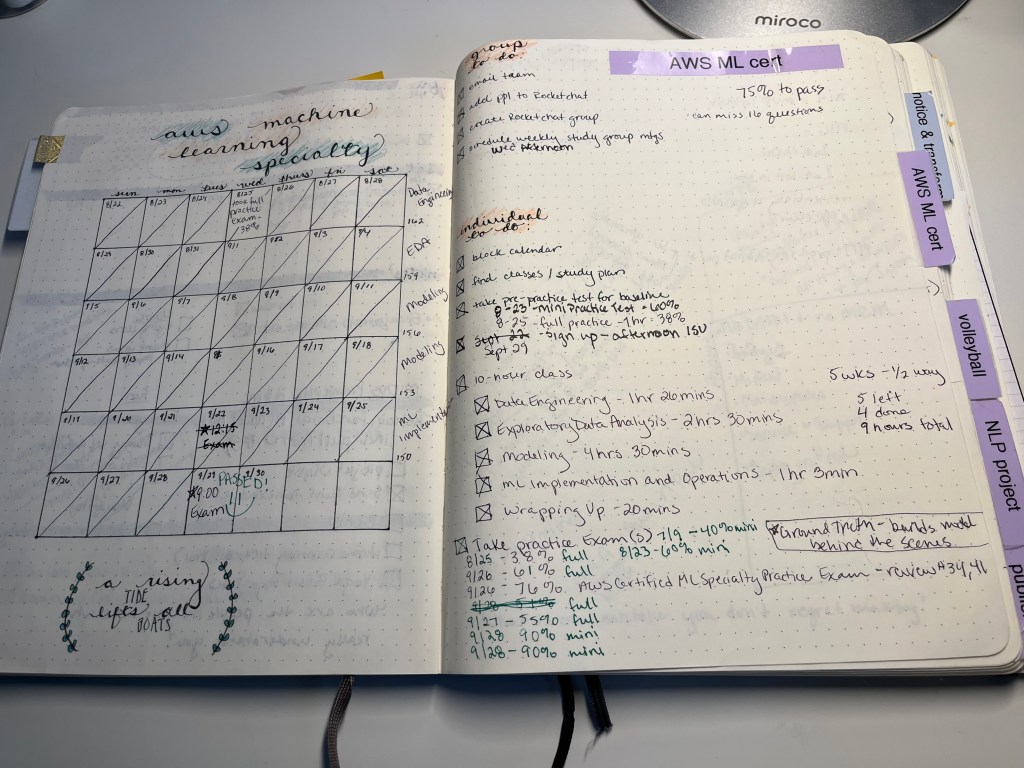 miroco
AWS ML cert
notice & transform
AWS ML cert
volleyball
NLP project
aws machine
learning
specialty
sun mon tues wed thurs fri sat
8/22 8/23 8/24 8/25 8/26 8/27 8/28
took full
practice
exam -
38%
Data
Engineering
162
8/29 8/30 8/31 9/1 9/2 9/3 9/4
EDA
159
9/5 9/6 9/7 9/8 9/9 9/10 9/11
modeling
156
9/12 9/13 9/14 9/16 9/17 9/18
modeling
153
9/19 9/20 9/21 9/22 9/23 9/24 9/25
12:15
Exam
ML
Implementation
150
9/26 9/27 9/28 9/29 9/30
PASSED!
9:00
Exam!
a rising
TIDE
lifts all
BOATS
group
to do:
email team
add ppl to Rocketchat
create Rocketchat group
schedule weekly study group mtgs
Wed Afternoon
75% to pass
can miss 16 questions
individual
to do:
block calendar
find classes / study plan
take pre-practice test for baseline
8-23 - mini Practice Test - 60%
8-25 - full practice - 1hr - 38%
Sept 22 - sign up - afternoon ISU
Sept 29
10-hour class
5 wks - 1/2 way
Data Engineering - 1hr 20mins
5 left
Exploratory Data Analysis - 2hrs 30mins
4 done
9 hours total
Modeling - 4hrs 30mins
ML Implementation and Operations - 1hr 3min
Wrapping Up - 20mins
Take practice Exam(s) 7/9 - 40% mini
*Ground Truth - builds model
behind the scenes
8/25 - 38% full 8/23 - 60% mini
9/26 - 61% full
9/26 - 76% AWS Certified ML Specialty Practice Exam - review #34, 41
full
9/27 - 55% full
9/28 90% mini
9/28 - 90% mini